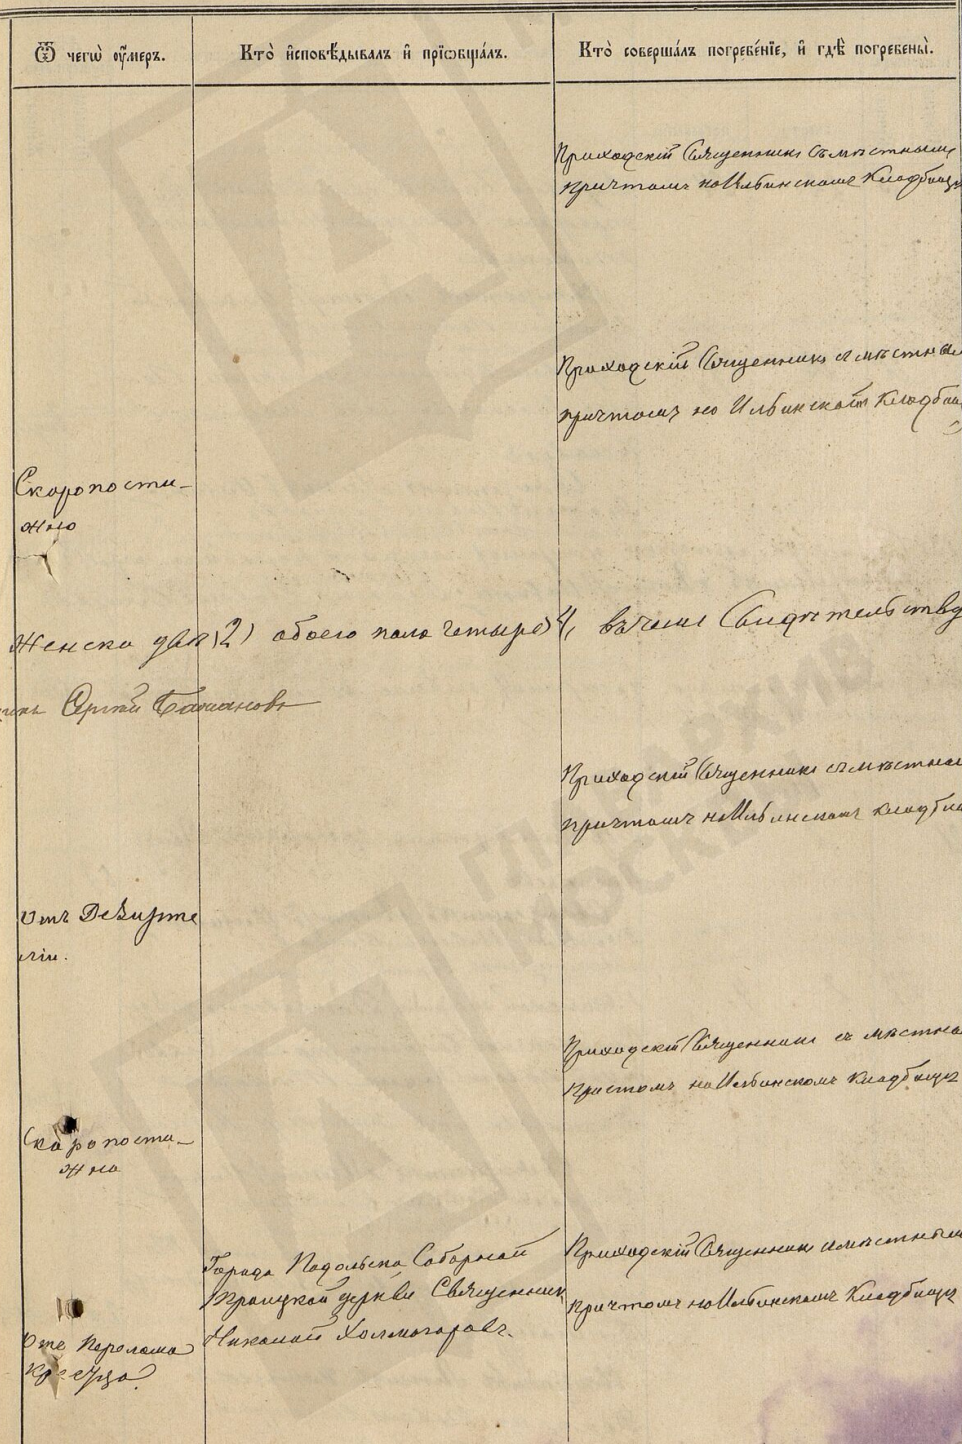 Ѿ чегѡ̀ ᲂу҆́меръ.
Кто̀ и҆сповѣ́дывалъ и҆ прїѡбща́лъ.
Кто̀ соверша́лъ погребе́нїе, и҆ гдѣ̀ погребены̀.
Приходскій Священникъ съ мѣстнымъ
причтомъ на Ильинскомъ Кладбищѣ
Приходскій Священникъ съ мѣстным
причтомъ на Ильинскомъ Кладби
Скоропости-
жно
Женска два (2) обоего пола четыре) 4, въ чемъ Свидѣтельству
Сергій Бажановъ
Приходскій Священникъ съ мѣстным
причтомъ на Ильинскомъ кладби
Отъ
Приходскій Священникъ съ мѣстны
Причтомъ на Ильинскомъ кладбищѣ
Скоропости-
жно
Города Подольска Соборной
Троицкой церкви Священникъ
Николай Холмогоровъ.
Приходскій Священникъ съ мѣстным
причтомъ на Ильинскомъ Кладбищѣ
Отъ